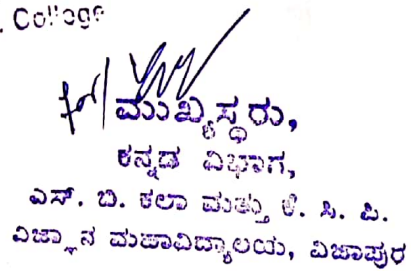 College
for
ಮುಖ್ಯಸ್ಥರು,
ಕನ್ನಡ ವಿಭಾಗ,
ಎಸ್. ಬಿ. ಕಲಾ ಮತ್ತು ಕೆ. ಸಿ. ಪಿ.
ವಿಜ್ಞಾನ ಮಹಾವಿದ್ಯಾಲಯ, ವಿಜಾಪುರ